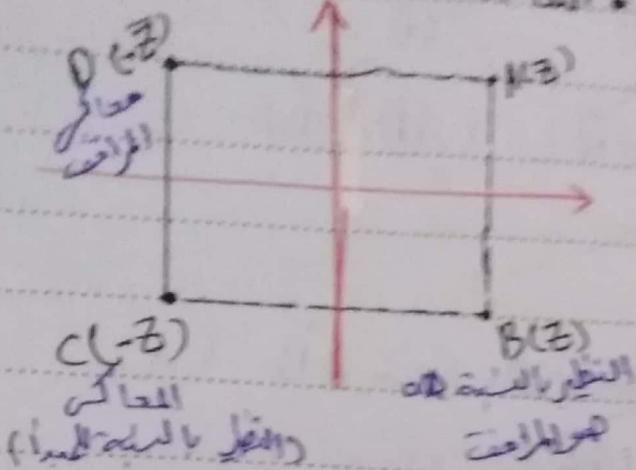 D(-Z̄)
معاكس
المرافق
A(Z)
C(-Z)
المعاكس
(النظير بالنسبة للمبدأ)
B(Z̄)
النظير بالنسبة
هو المرافق